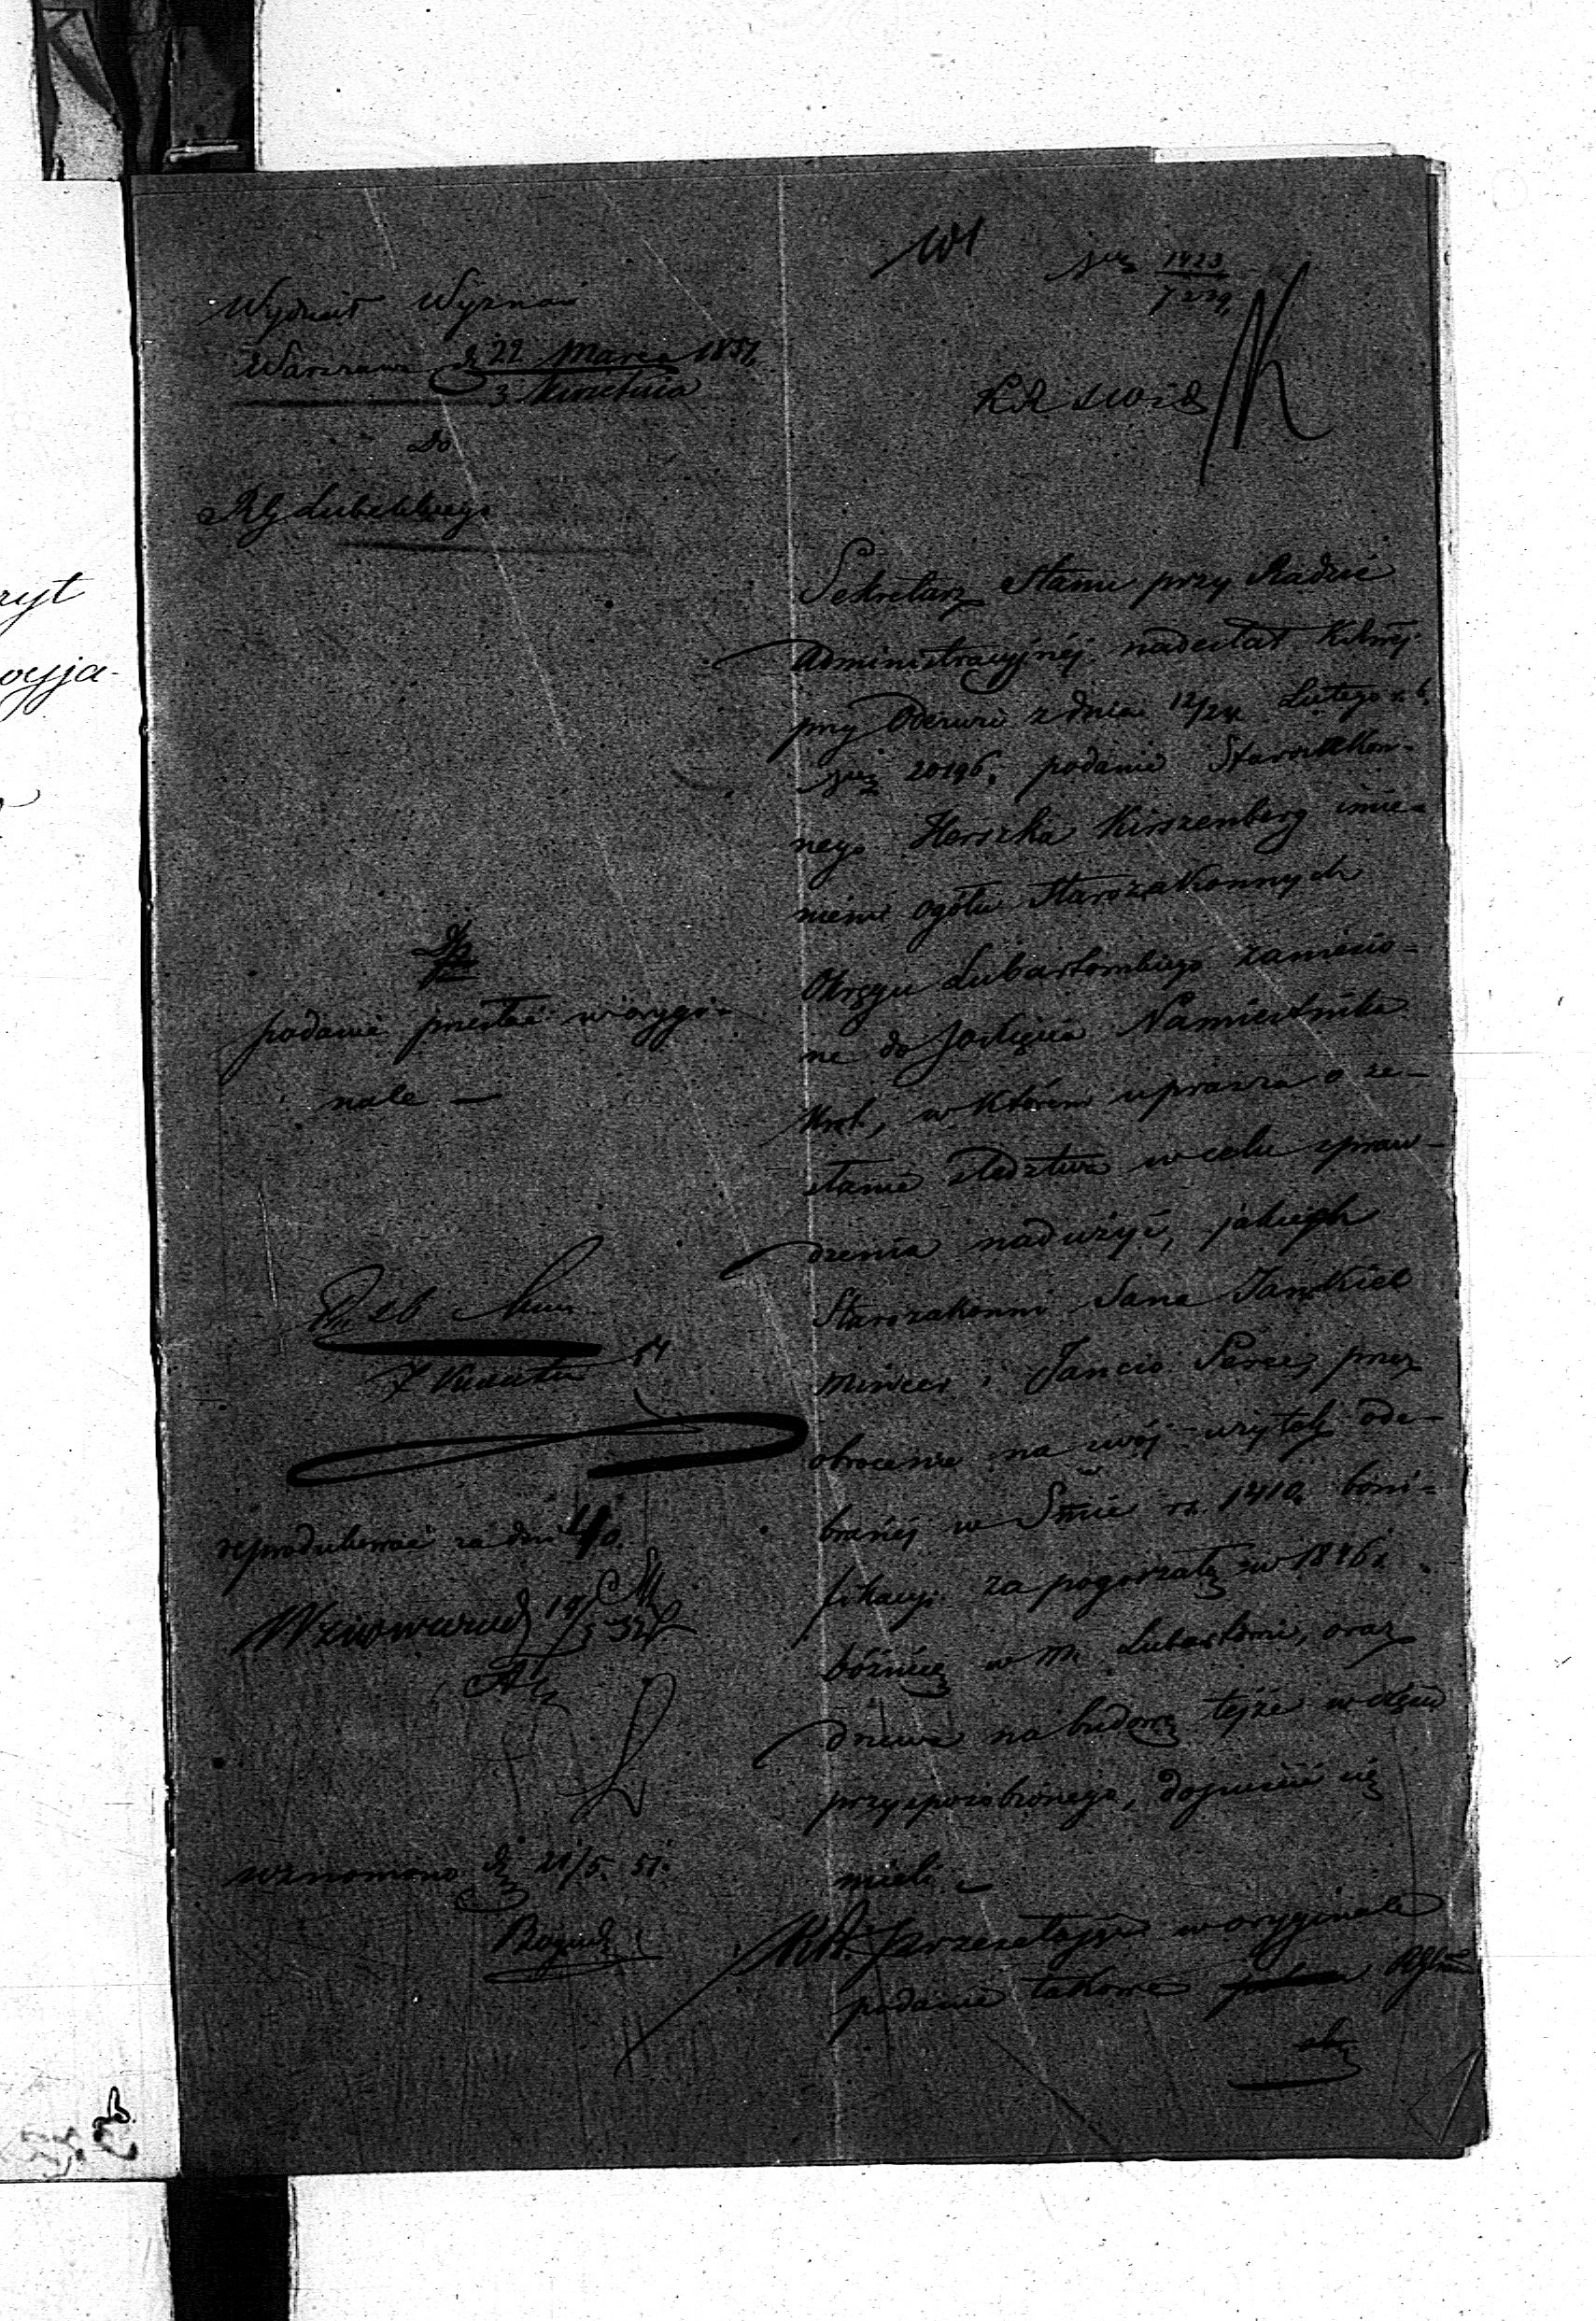 Wydział Wyznań
Warszawa d 22 Marca 1851
3 Kwietnia
Do
RG Lubelskiego
podanie przesłać w orygi-
nale —
reprodukować za dni 40.
wznowiono d 21/5 51.
No 1423
7229
KRSWiD
Sekretarz Stanu przy Radzie
Administracyjnéj nadesłał
przy Odezwie z dnia 12/24 Lutego r. b.
No 20196. podanie Starozakon-
nego Herszka Kirszenberg imie-
niem ogółu Starozakonnych
Okręgu Lubartowskiego zaniesio-
ne do JO Księcia Namiestnika
Król, w którem uprasza o ze-
słanie śledztwa w celu spraw-
dzenia nadużyć, jakich
Starozakonni Jankiel
Mincer i Jancio przez
obrócenie na swój użytek ode-
branéj w Sumie rs. 1410. boni-
fikacyi za pogorzałą w 1846 r.
bóżnicę w M. Lubartowie, oraz
drzewa na budowę tejże w części
przysposobionego, dopuścić się
mieli. —
przesyłając w oryginale
podanie takowe
ryt
ocyja-